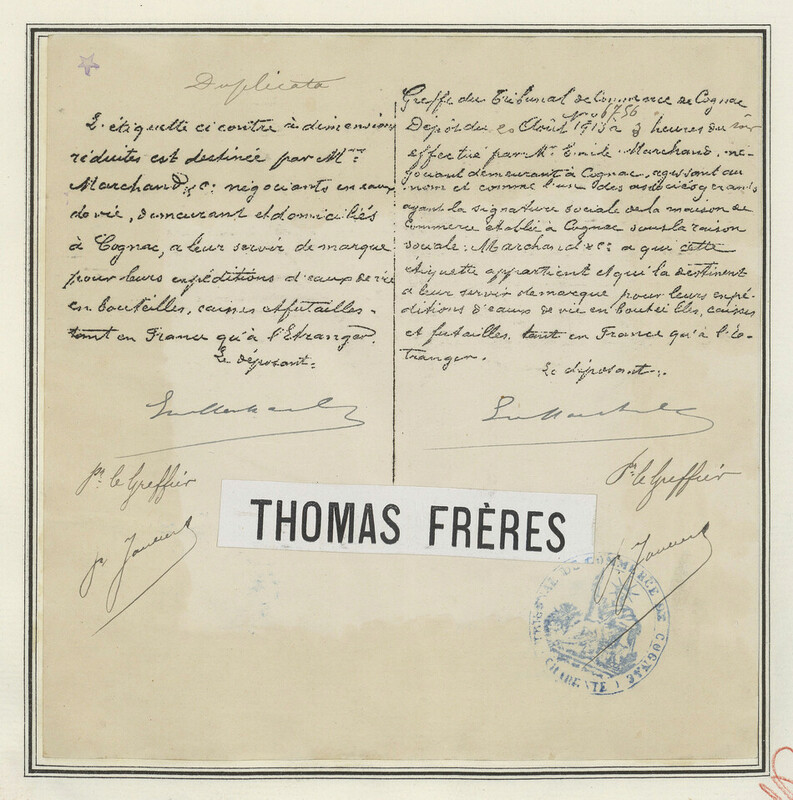 Duplicata
L'étiquette ci contre à dimensions
réduites est destinée par Mrs
Marchand & Cie négociants en eaux
de vie, demeurant et domiciliés
à Cognac, a leur servir de marque
pour leurs expéditions d'eaux de vie
en bouteilles, caisses et futailles-
tant en France qu'à l'Etranger.
Le déposant:
Pr le Greffier
Greffe du Tribunal de Commerce de Cognac
No 6756
Dépôt du 20 Août 1913 a 3 heures du soir
effectué par Mr Emile Marchand, né-
gociant demeurant à Cognac, agissant au
nom et comme l'un des associés gérants
ayant la signature sociale de la maison de
Commerce établie à Cognac sous la raison
sociale: Marchand & Cie a qui cette
étiquette appartient et qui la destinent
a leur servir de marque pour leurs expé-
ditions d'eaux de vie en bouteilles, caisses
et futailles, tant en France qu'à l'é-
tranger.
Le déposant:
Pr le Greffier
THOMAS FRÈRES
TRIBUNAL DE COMMERCE DE COGNAC
CHARENTE